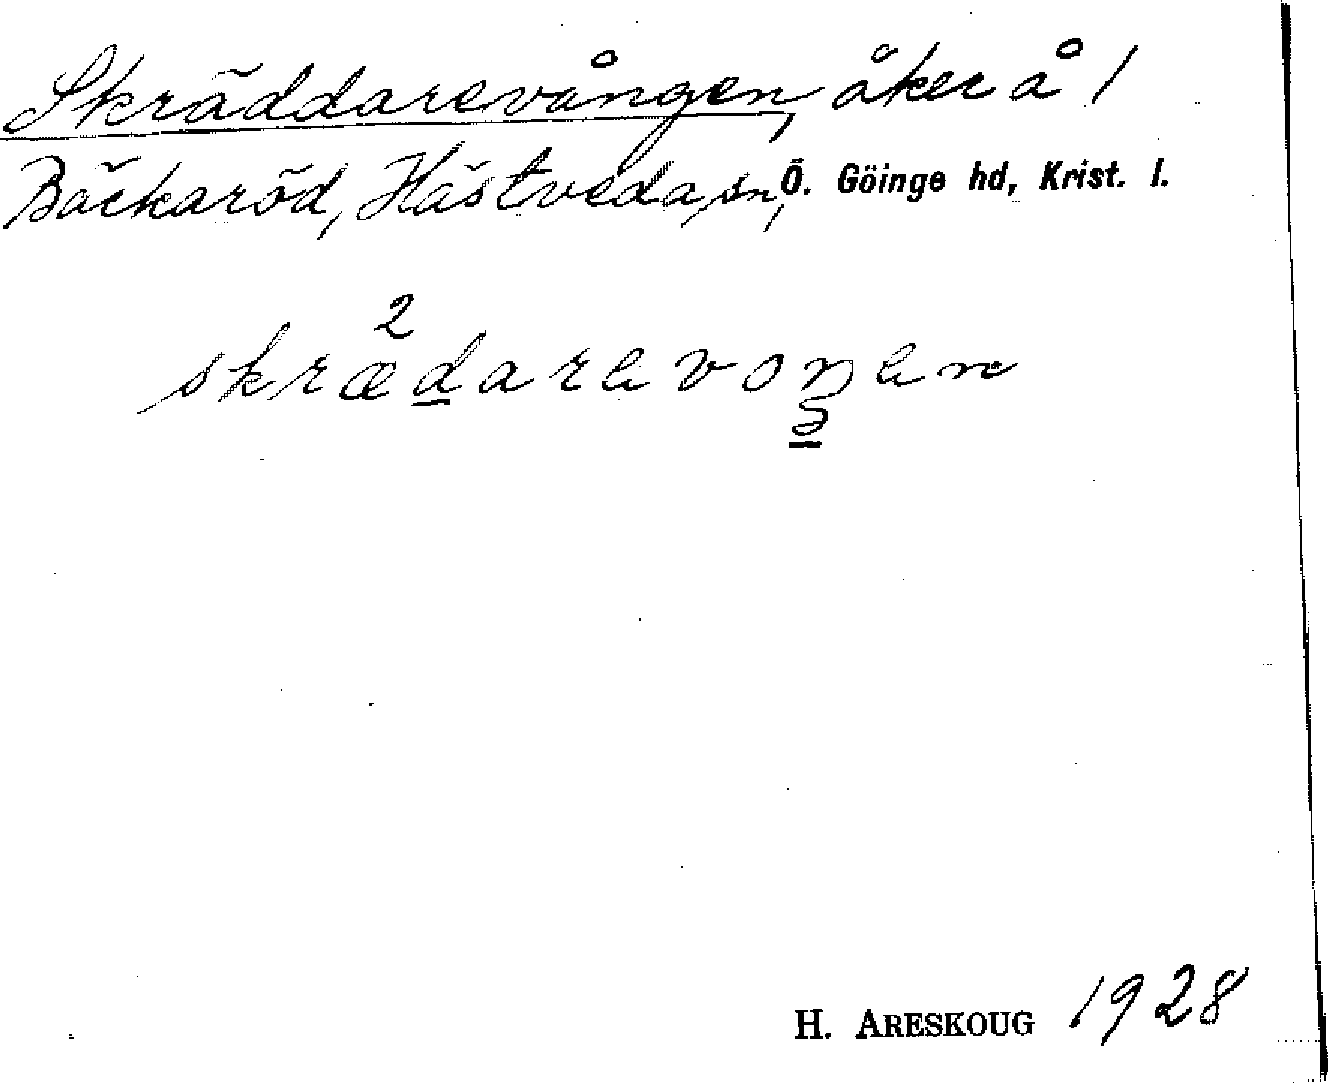 Skräddarevången, åker å 1
Bäckaröd, Hästveda sn, Ö. Göinge hd, Krist. l.
2
skrædarevoŋen
H. ARESKOUG 1928